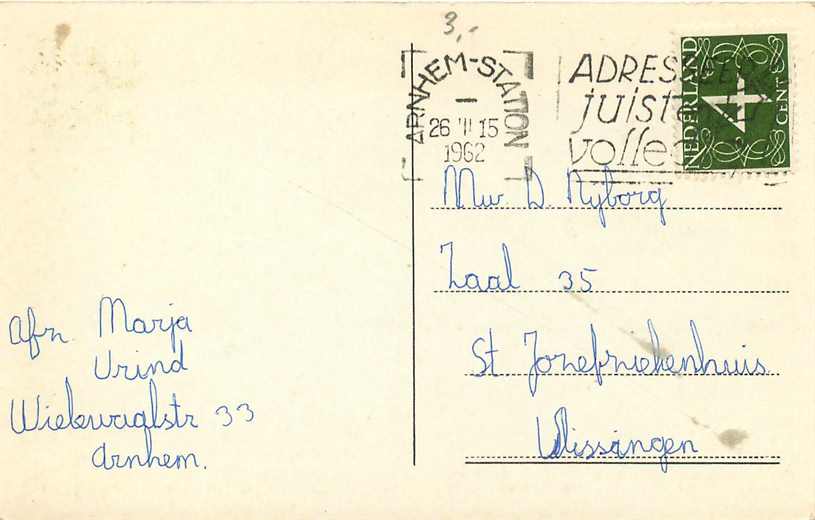 3,-
ARNHEM-STATION
26 VII 15
1962
ADRESSEER
juist en
volledig
NEDERLAND
4
CENT
Mw D. Nyborg
Zaal 35
St Jozefziekenhuis
Vlissingen
Afz Marja
Vrind
Arnhem.